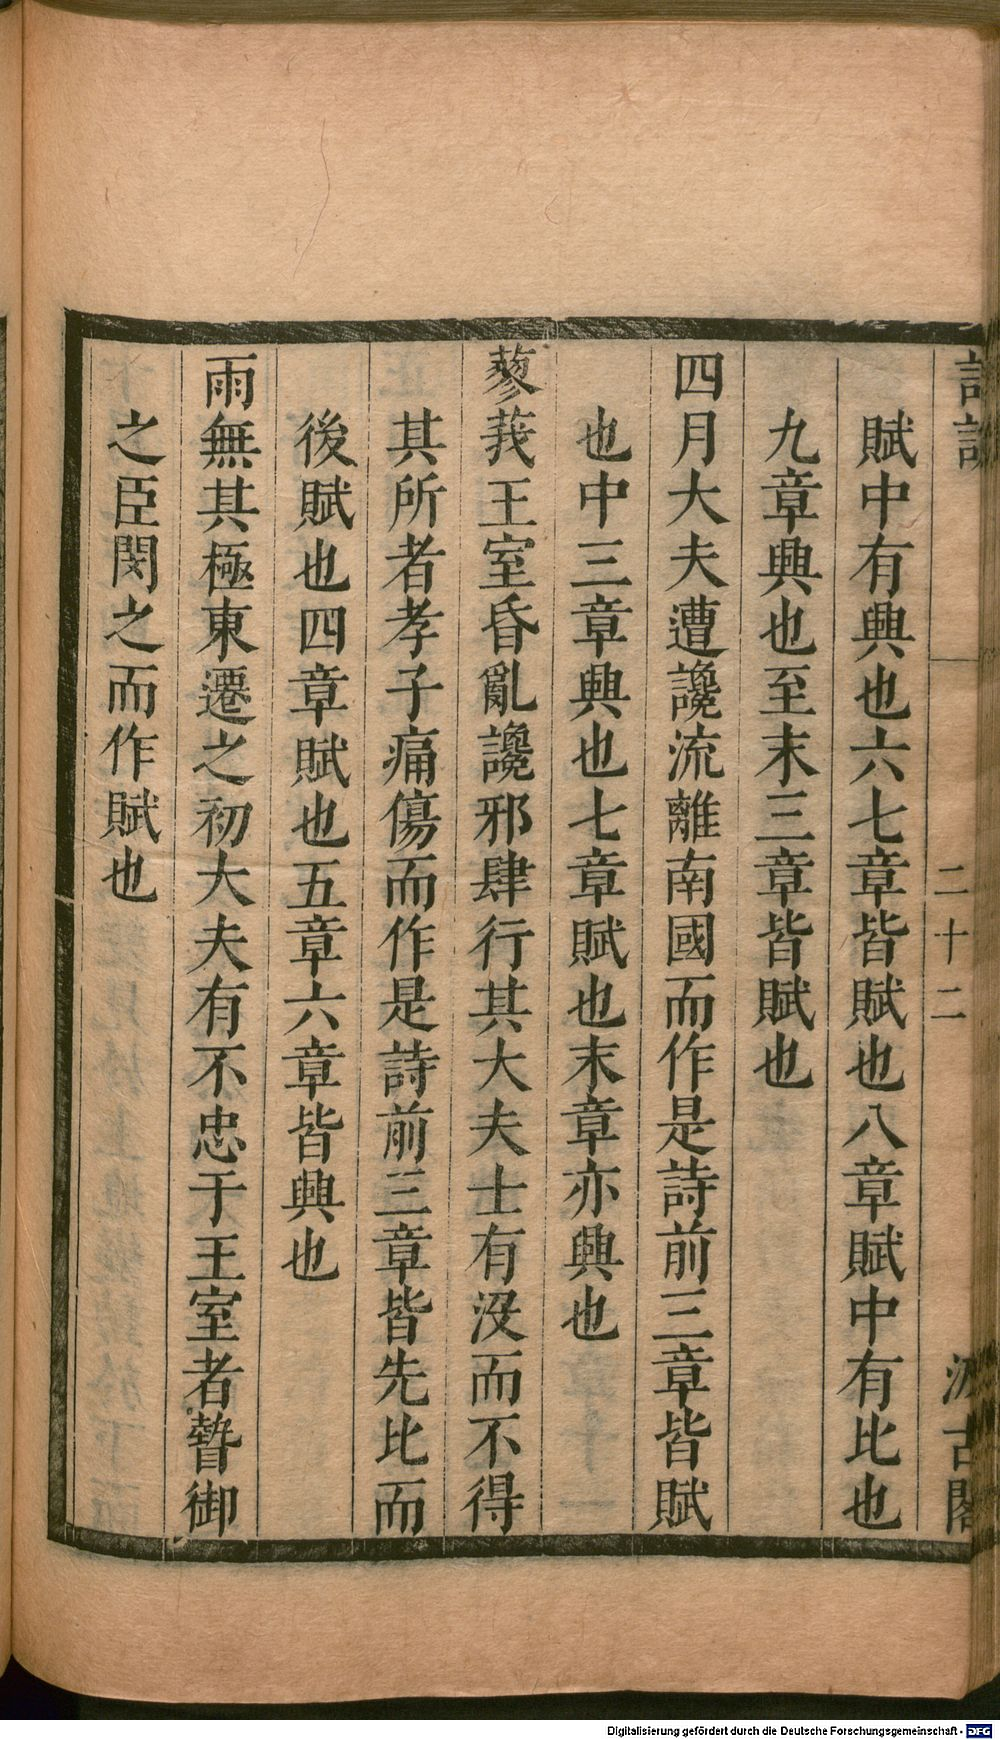 賦中有興也六七章皆賦也八章賦中有比也
九章興也至末三章皆賦也
四月大夫遭讒流離南國而作是詩前三章皆賦
也中三章興也七章賦也末章亦興也
蓼莪王室昏亂讒邪肆行其大夫士有沒而不得
其所者孝子痛傷而作是詩前三章皆先比而
後賦也四章賦也五章六章皆興也
雨無其極東遷之初大夫有不忠于王室者暬御
之臣閔之而作賦也
二十二
古閣
Digitalisierung gefördert durch die Deutsche Forschungsgemeinschaft - DFG